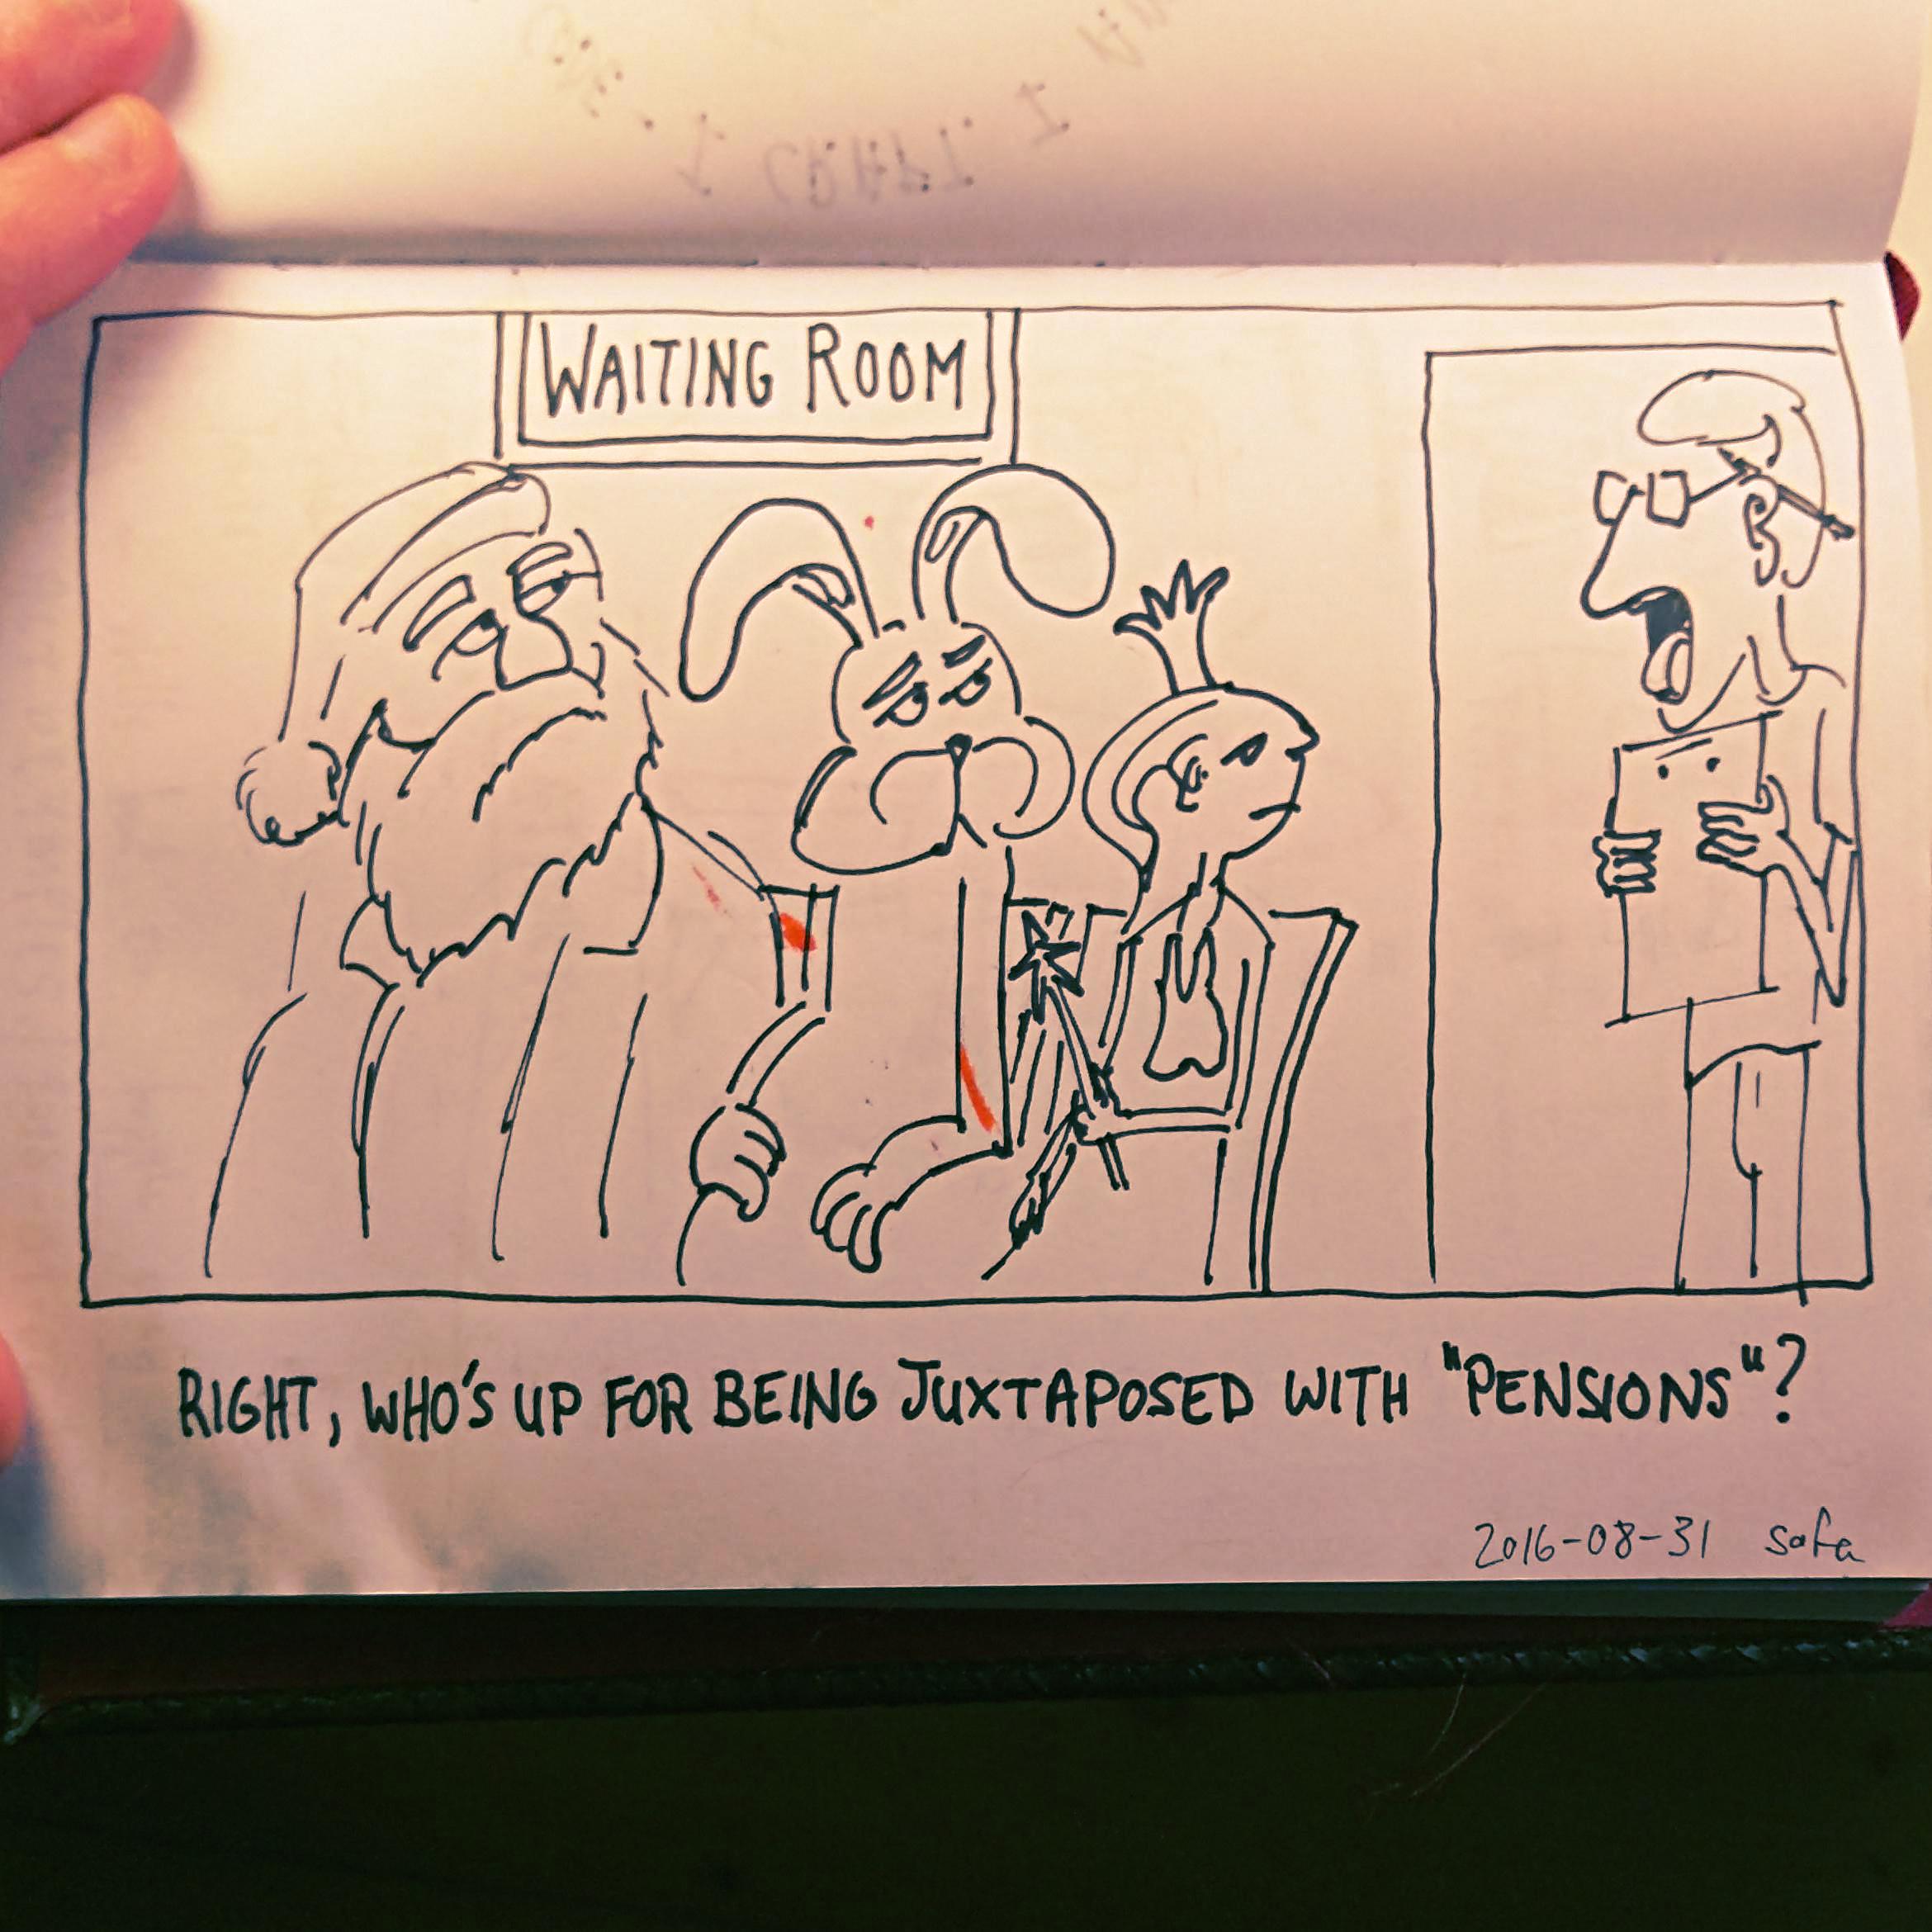 WAITING ROOM
RIGHT, WHO'S UP FOR BEING JUXTAPOSED WITH "PENSIONS"?
2016-08-31 sofa